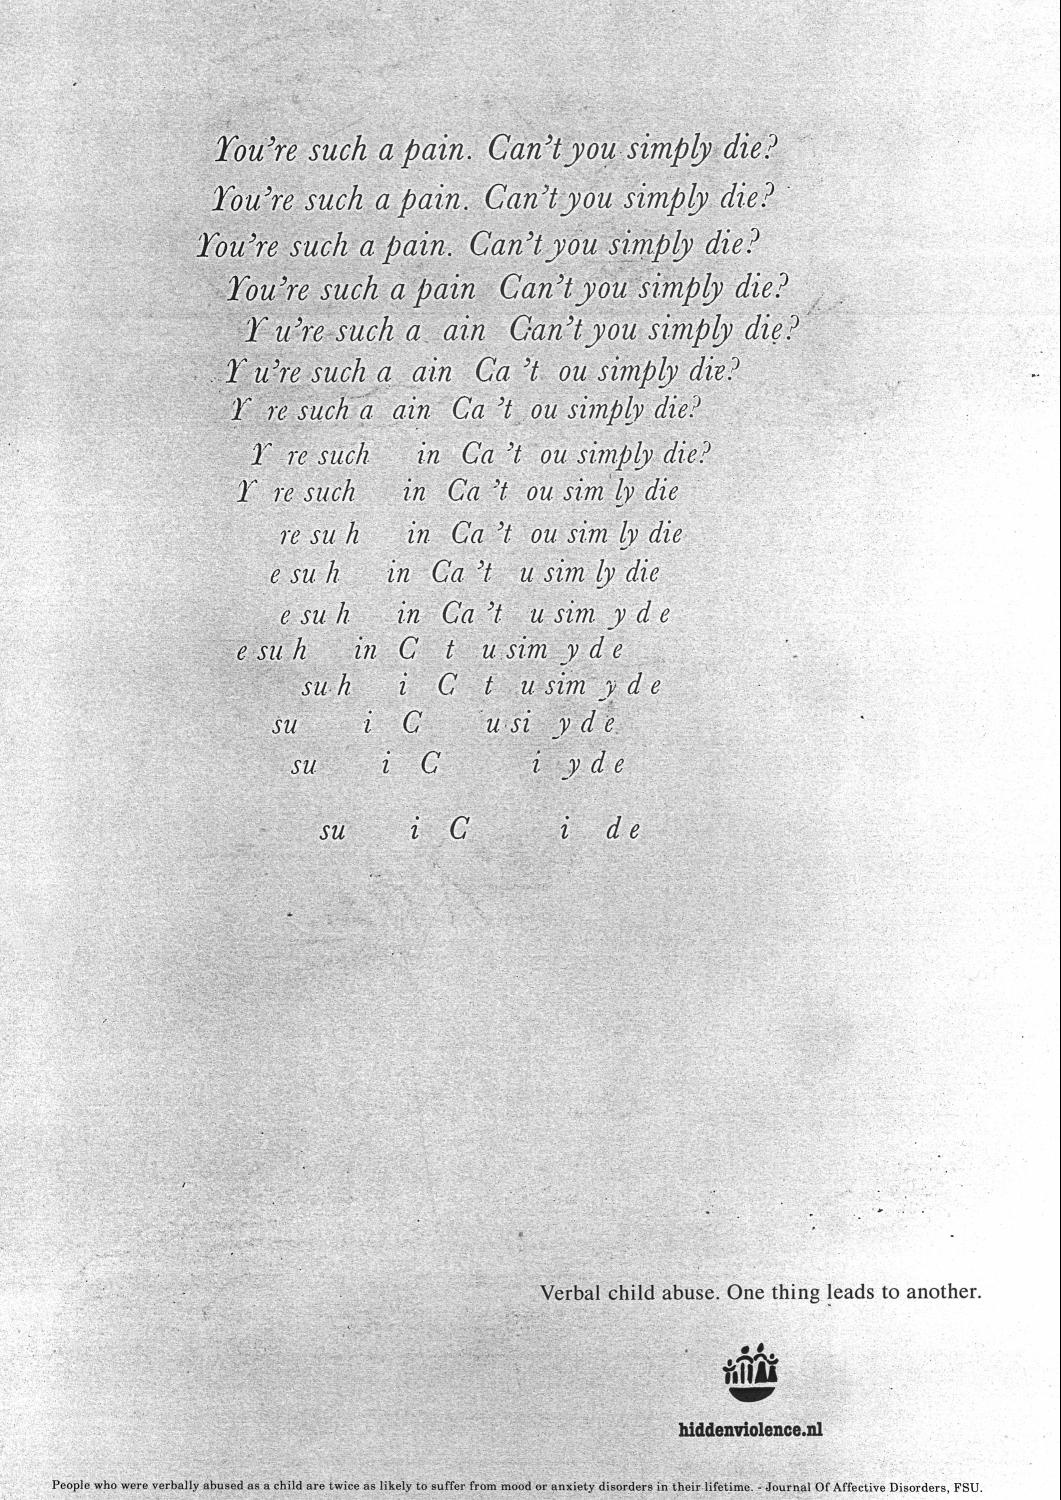 You're such a pain. Can't you simply die?
You're such a pain. Can't you simply die?
You're such a pain. Can't you simply die?
You're such a pain Can't you simply die?
Y u're such a ain Can't you simply die?
Y u're such a ain Ca 't ou simply die?
Y re such a ain Ca 't ou simply die?
Y re such in Ca 't ou simply die?
Y re such in Ca 't ou sim ly die
re su h in Ca 't ou sim ly die
e su h in Ca 't u sim ly die
e su h in Ca 't u sim y d e
e su h in C t u sim y d e
su h i C t u sim y d e
su i C u si y d e
su i C i y d e
su i C i d e
Verbal child abuse. One thing leads to another.
hiddenviolence.nl
People who were verbally abused as a child are twice as likely to suffer from mood or anxiety disorders in their lifetime. - Journal Of Affective Disorders, FSU.